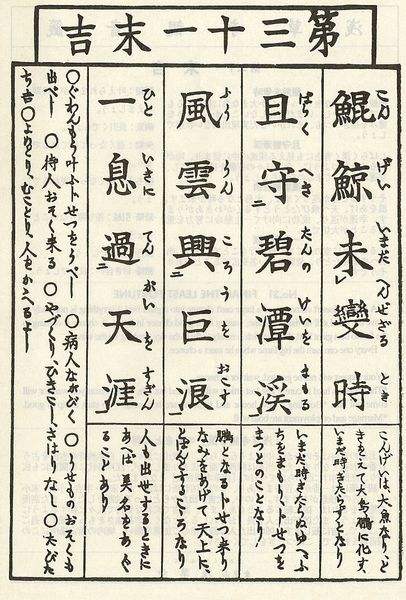 第三十一末吉
鯤鯨未變時
こん げい いまだ へんぜざる とき
且守碧潭溪
ばらく へき たんの けいを まもる
風雲興巨浪
ふう うん ころうを おこす
一息過天涯
ひと いきに てん がいを すぎん
こんげいは、大魚なり、と
きをえて大鳥鵬に化す、
いまだ時きたらずとなり
いまだ時きたらぬゆへふ
ちをまもり、じせつを
まつとのことなり
鵬となるじせつ来り
なみをあげて天上に、
とばんとするこころなり
人も出世するときに
あはゞ美名をあぐ
ることあり
〇ぐわんもう叶ふじせつをうべし 〇病人ながびく 〇うせものおそくも
出べし 〇待人おそく来る 〇やづくり、ひきこしさはりなし 〇たびだ
ち吉〇よめとり、むことり、人をかゝへるよし